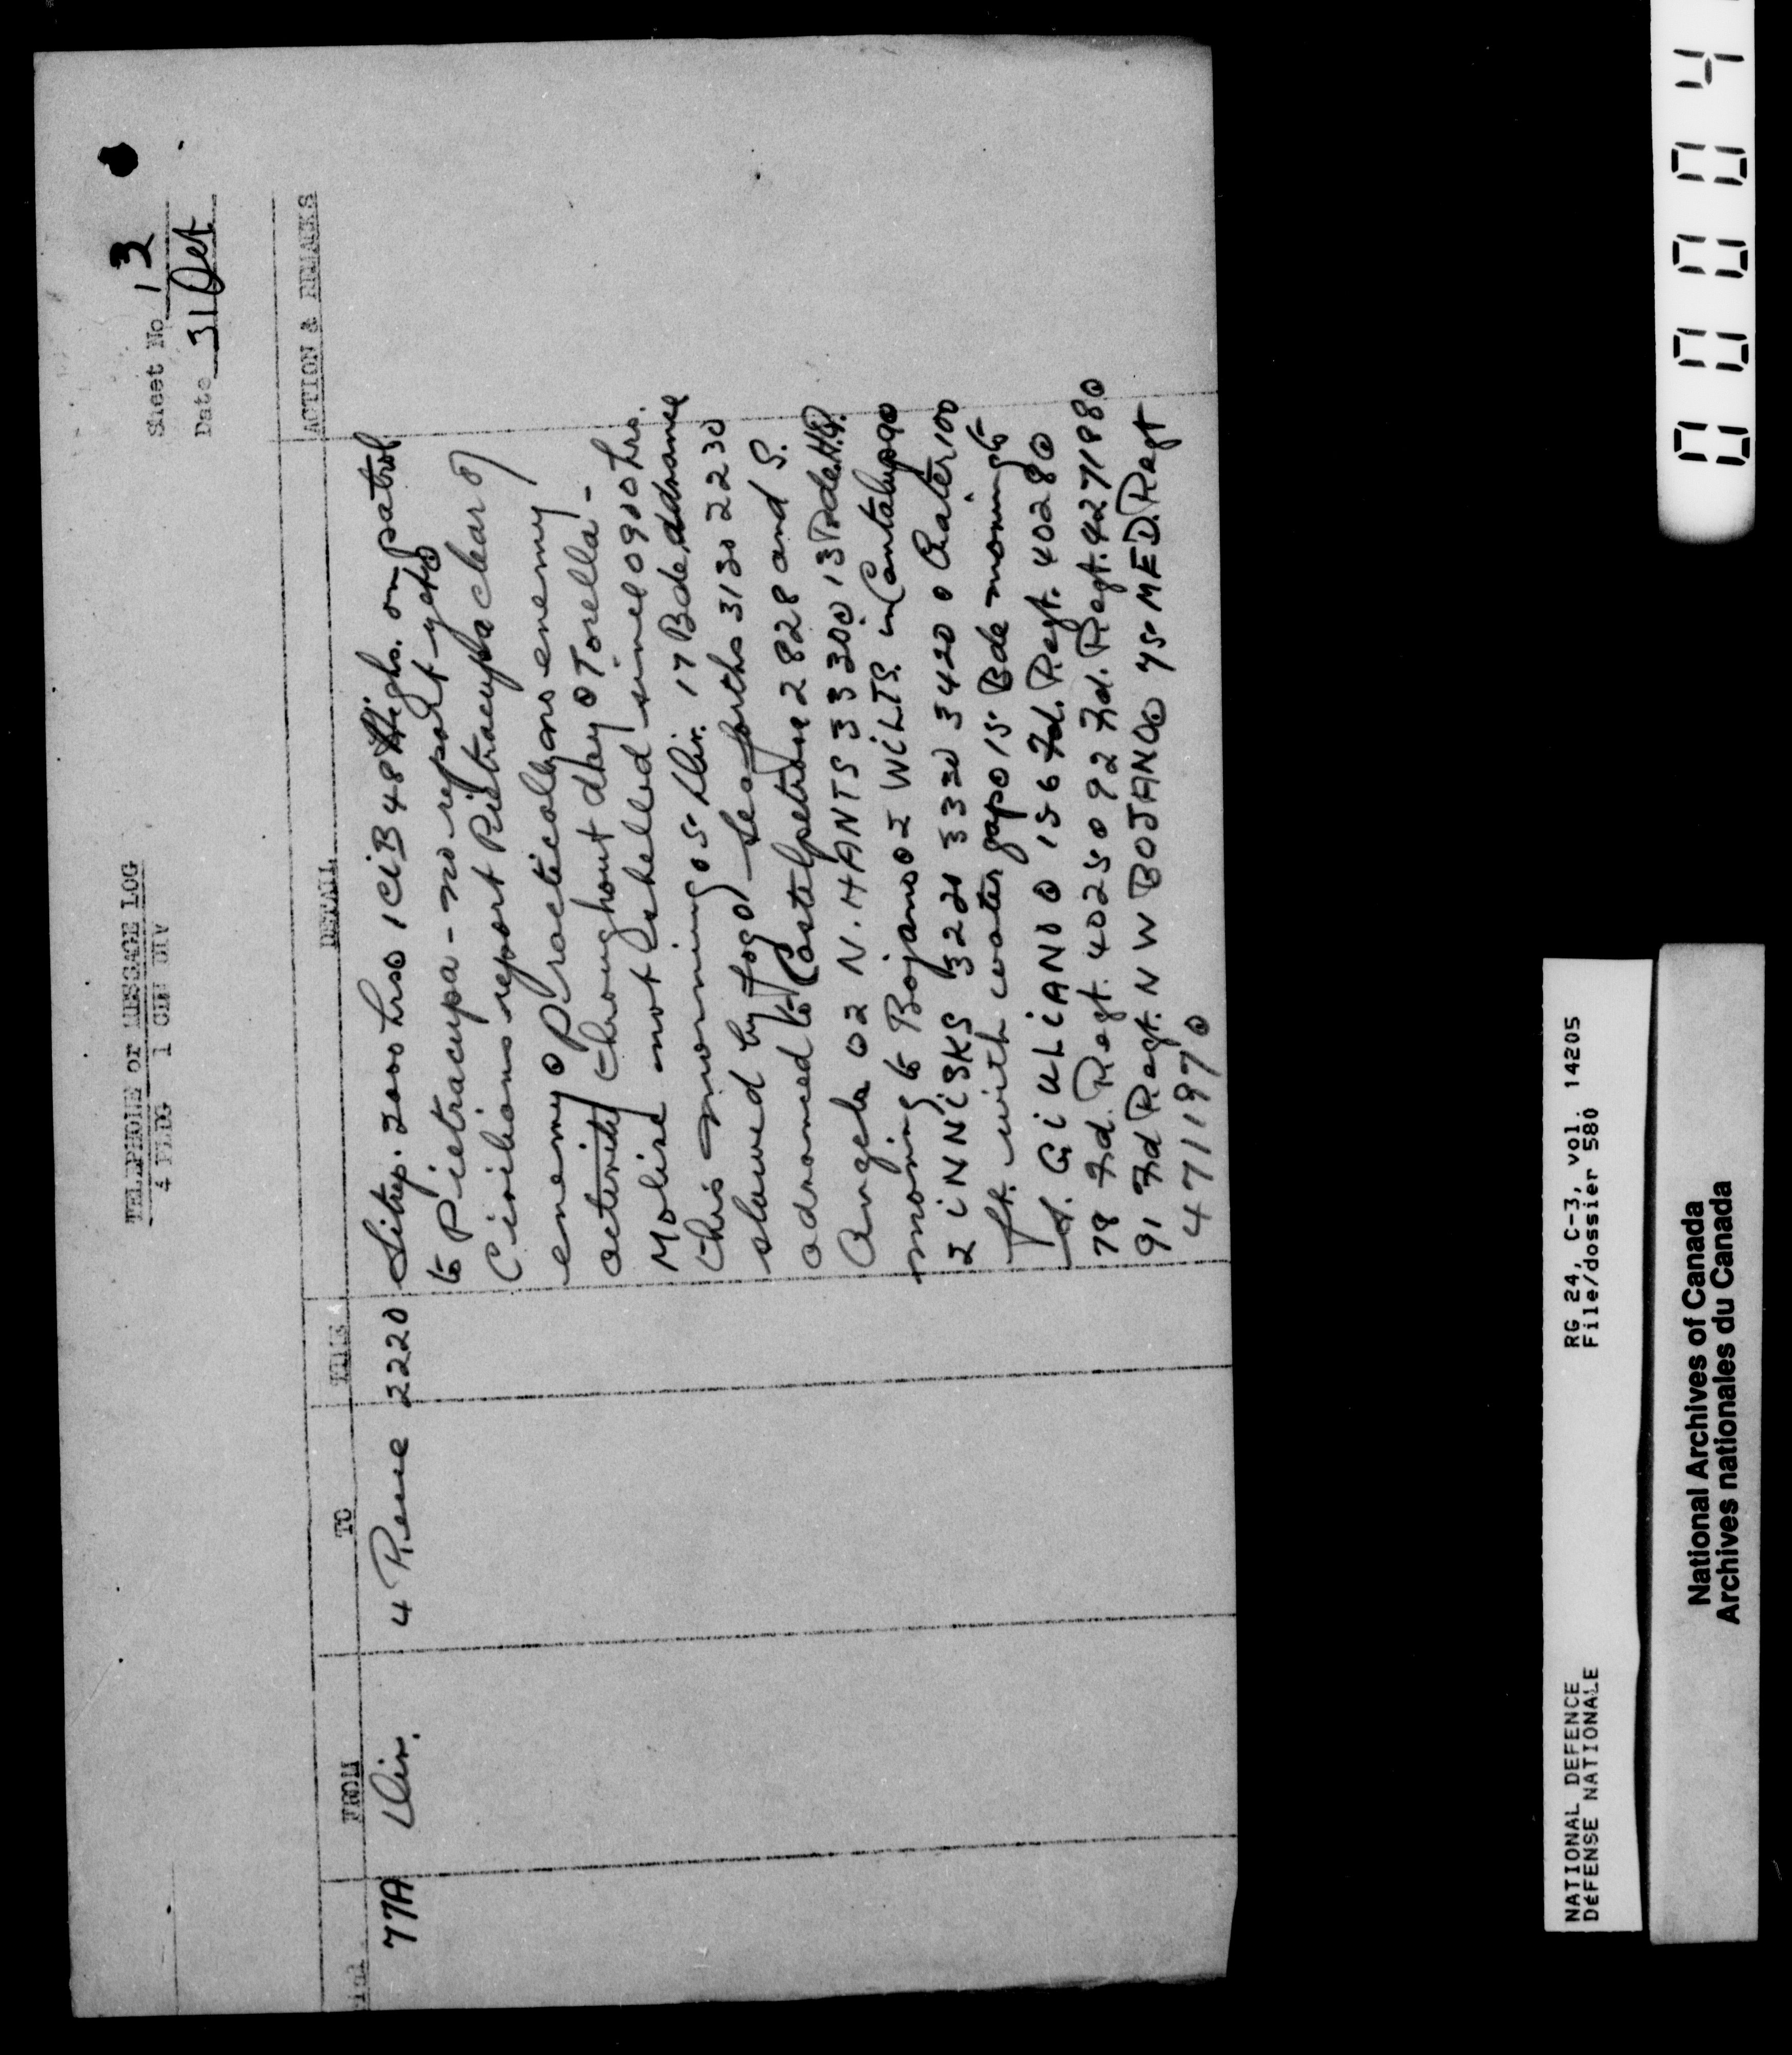 TELEPHONE or MESSAGE LOG
4 PLDG 1 CDN DIV
Sheet No 13
Date 31 Oct
FROM TO TIME DETAIL ACTION & REMARKS
77A Div. 4 Recce 2220 Sitrep. 2000 hrs ⊙ 1 CIB 48 Highs. on patrol
to Pietracupa - no report yet ⊙
Civilians report Pietracupa clear of
enemy ⊙ Practically no enemy
activity throughout day ⊙ Torella -
Molise not shelled since 0900 hrs.
this morning ⊙ 5 Div. 17 Bde advance
slowed by fog ⊙ Seaforths 3130 2230
advanced to Castelpetroso 2828 and S.
Angelo ⊙ 2 N. HANTS 3330 ⊙ 13 Bde H.Q.
moving to Bojano ⊙ 2 WILTS. in Cantalupo ⊙
2 INNISKS 3221 3330 3420 ⊙ Crater 100
ft. with water gap ⊙ 15 Bde moving to
S. GIULIANO ⊙ 156 Fd. Regt. 40280 ⊙
78 Fd. Regt. 40250 92 Fd. Regt. 4271980
91 Fd Regt. N W BOJANO ⊙ 75 MED. Regt
4711970
NATIONAL DEFENCE RG 24, C-3, vol. 14205
DÉFENSE NATIONALE File/dossier 580
National Archives of Canada
Archives nationales du Canada
00004